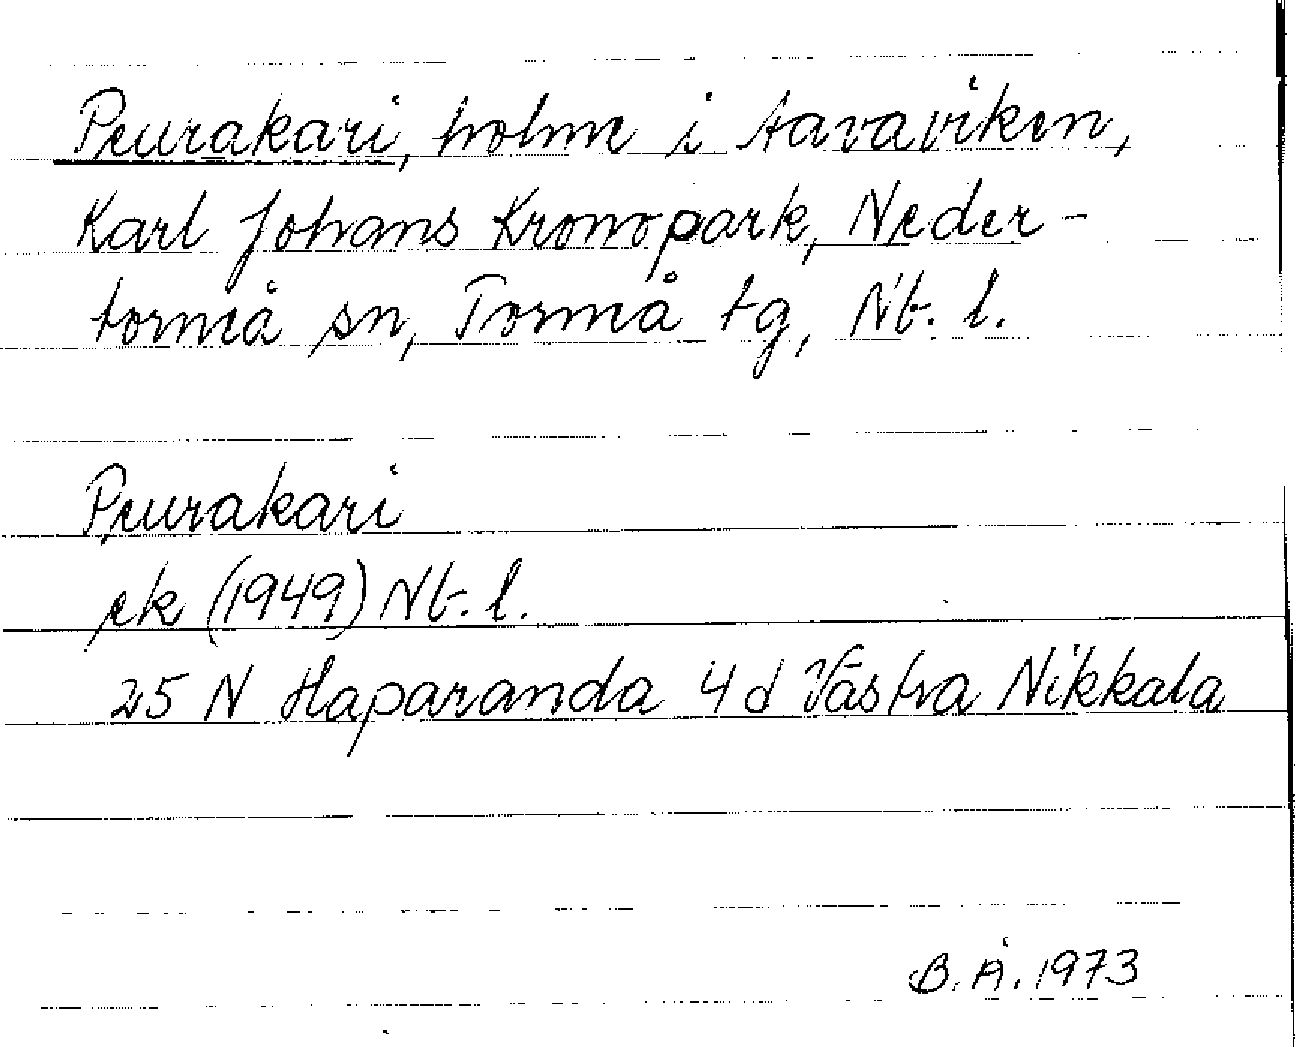 Peurakari, holme i Aavaviken,
Karl Johans Kronopark, Neder-
torneå sn, Torneå tg, Nb. l.
Peurakari
ek (1949) Nb. l.
25 N Haparanda 4 d Västra Nikkala
B. Å. 1973